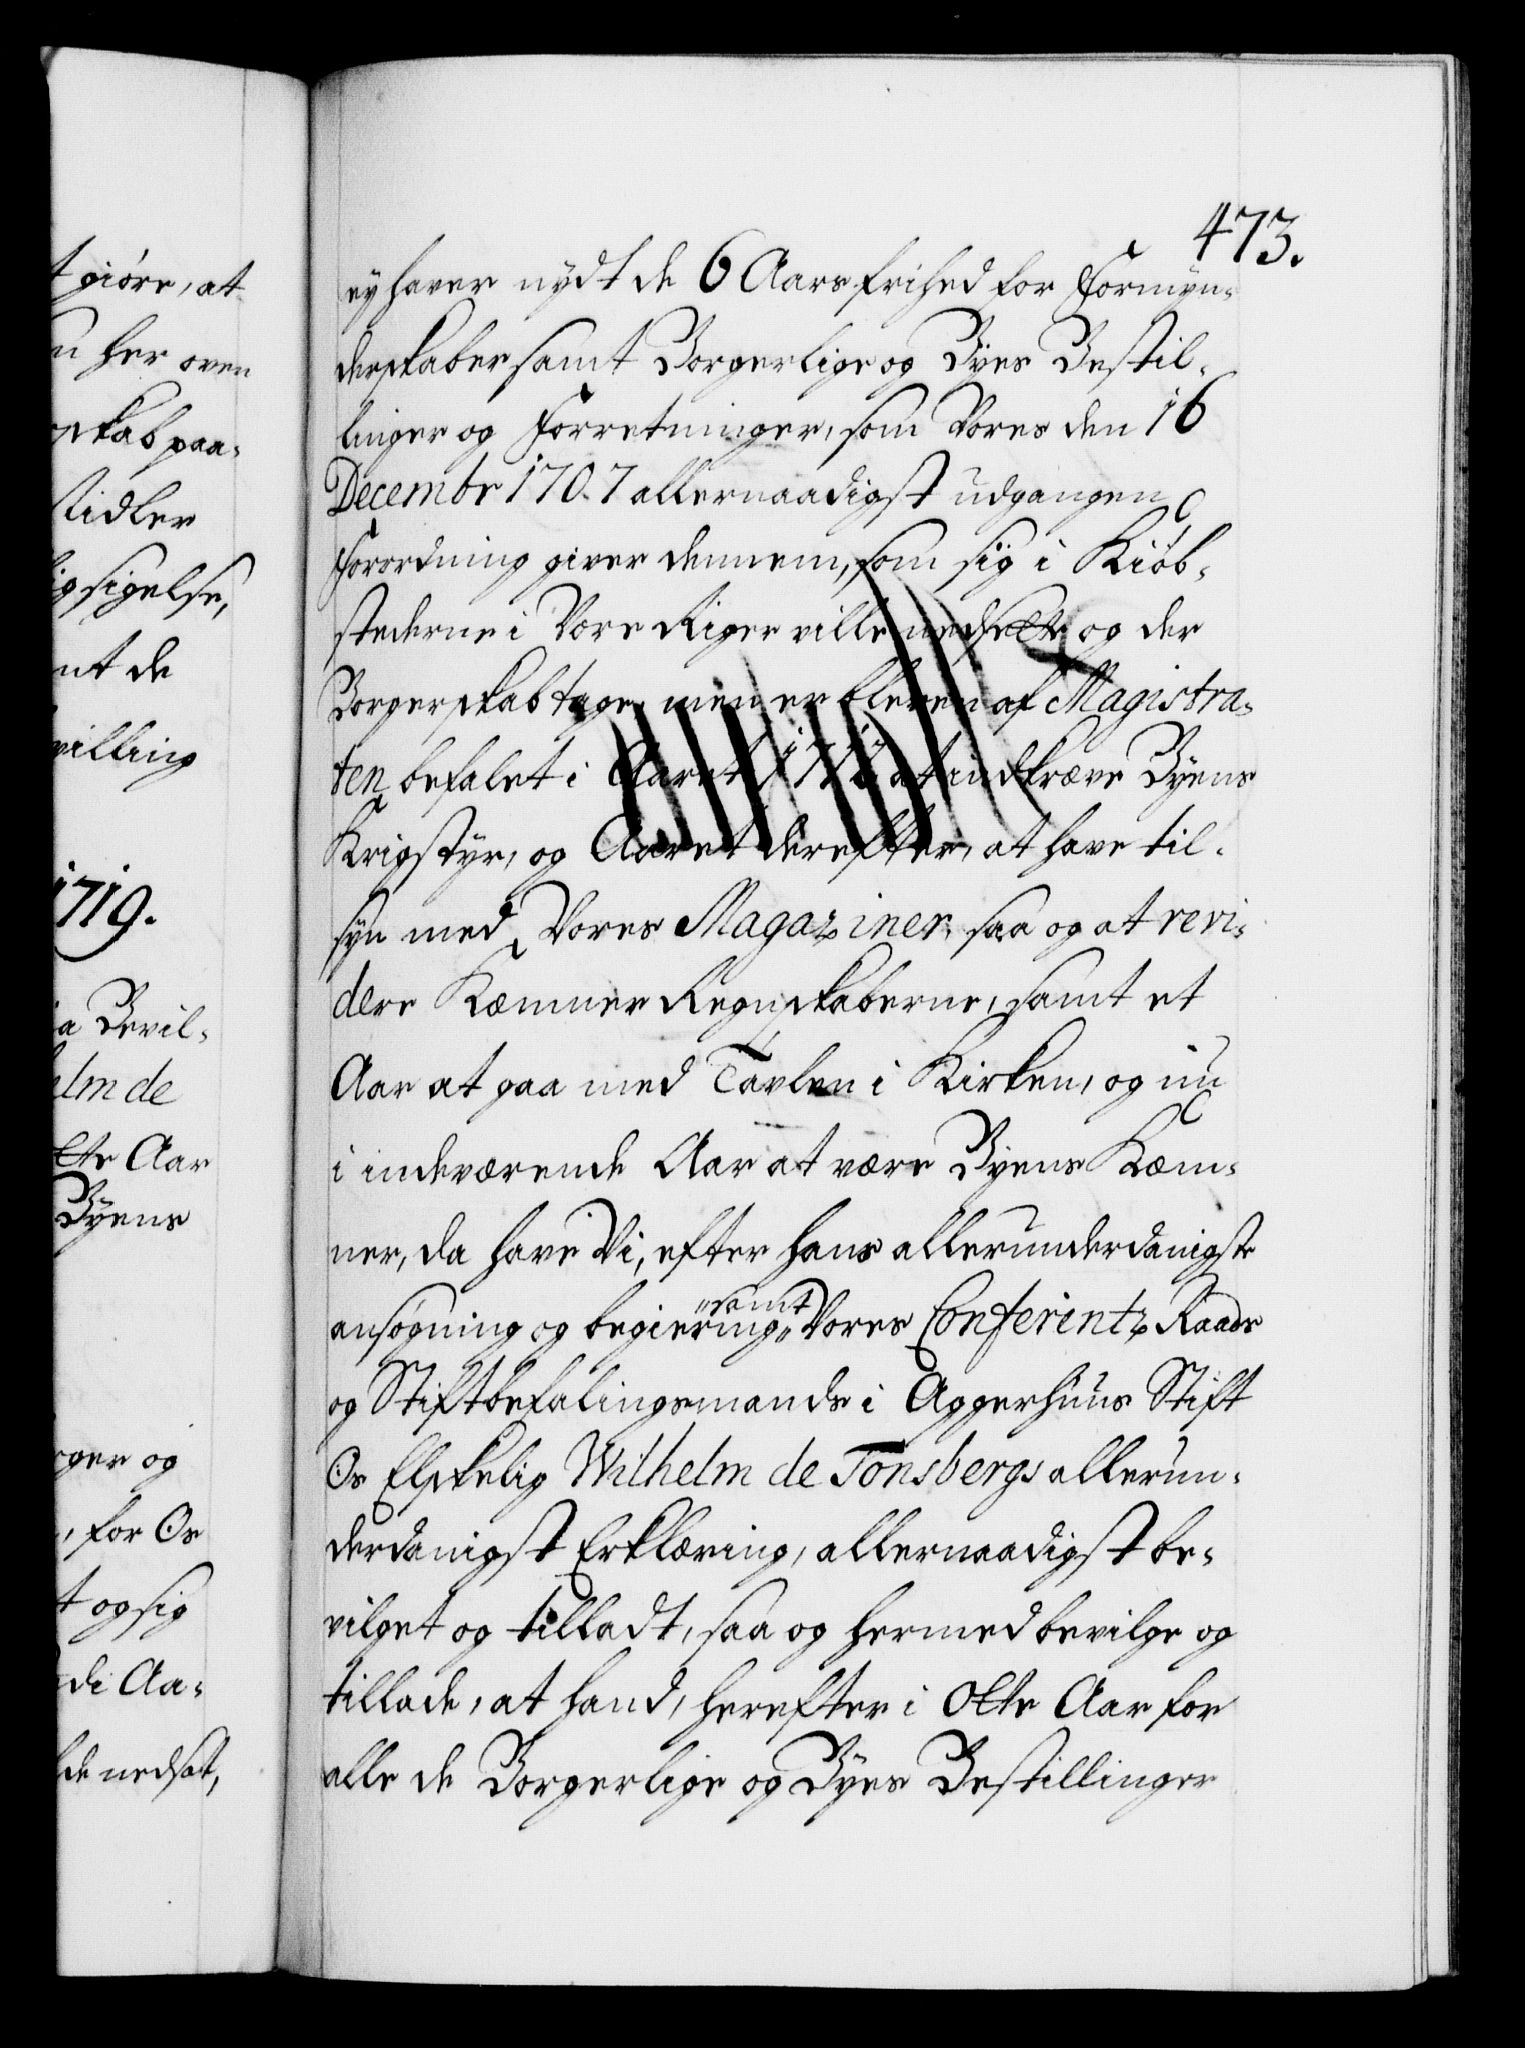 t giöre, at
u her oven
skab paa-
stidler
ig sigelse,
nt de
villing
1719.
a Bevil-
elm de
tte Aar
Byens
rger og
, for Os
t og sig
di Aa-
de nedsat,
473.
ey haver nydt de 6 Aars frihed for Formÿn-
derskaber samt Borgerlige og Byes Bestil-
linger og Forretninger, som Vores den 16
Decembr 1707 allernaadigst udgangen
Forordning giver dennem, som sig i Kiöb-
stederne i Vore Riger ville nedsætte og der
Borgerskab tage, men er bleven af Magistra-
ten befalet i Aaret 1712 at indkræve Byens
Krigstyr, og Aaret derefter, at have til-
syn med Vores Magaziner, saa og at revi-
dere Kæmner Regnskaberne, samt et
Aar at gaa med Tavlen i Kirken, og nu
i indeværende Aar at være Byens Kæm-
ner, da have Vi, efter hans allerunderdanigste
ansøgning og begiering "samt" Vores Conferentz Raads
og Stiftbefalingsmands i Aggerhuus Stift
Os Elskelig Wilhelm de Tonsbergs allerun-
derdanigst Erklæring, allernaadigst be-
vilget og tilladt, saa og hermed bevilge og
tillade, at hand, herefter i Otte Aar for
alle de Borgerlige og Byes Bestillinger